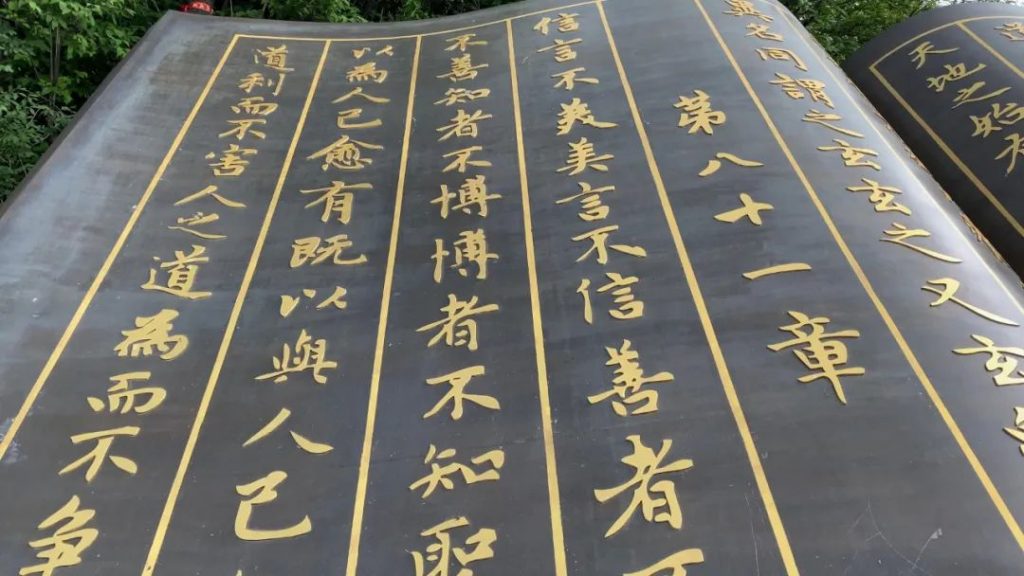 天地之始
異名同謂之玄玄之又玄
第八十一章
信言不美美言不信善者不
不善知者不博博者不知聖
以為人己愈有既以與人己
道利而不害人之道為而不争